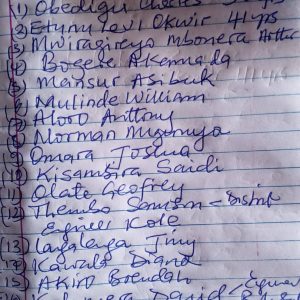 (1) Obedigu Charles
(2) Etunu Levi Okwir 41yrs
(3) Mwiragireyo Mbonera Arthur
(4) Bogere Akemada
(5) Mansur Asibuk
(6) Mulinde William
(7) Aloro Anthony
(8) Norman
(9) Omara Joshua
(10) Kisambira Saidi
(11) Olate Geofrey
(12) Thembo Samson -
Kole
(13) Langalanga Jimy
(14) Kawala Diana
(15) Akiro Brendah
David